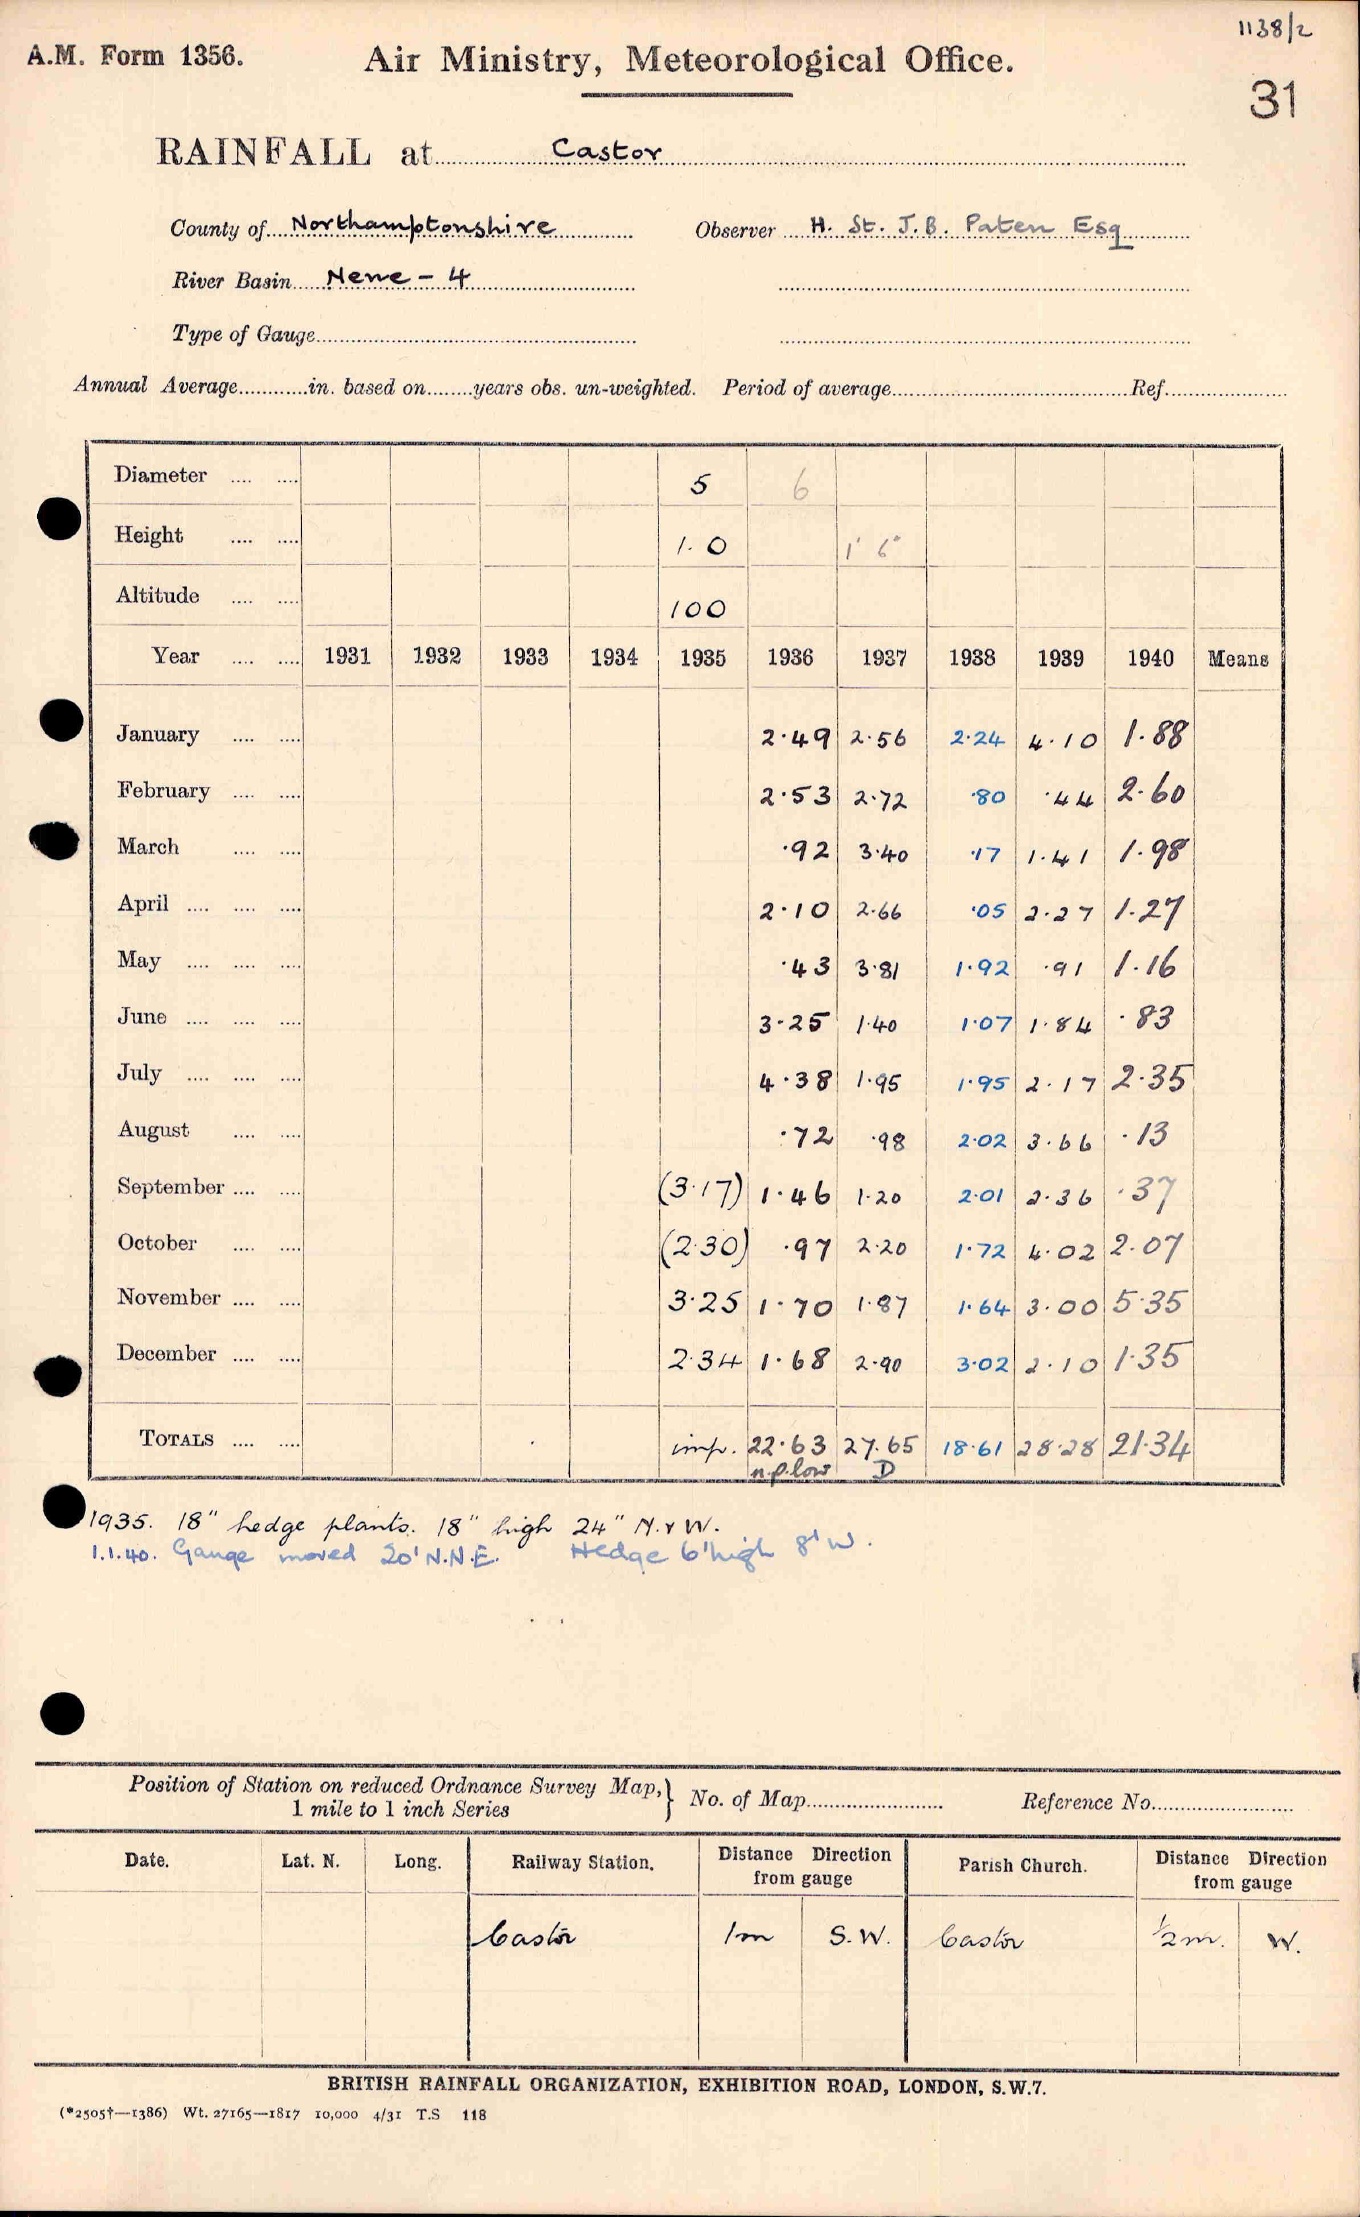 1138/2
A.M. Form 1356. Air Ministry, Meteorological Office.
31
RAINFALL at Castor
County of Northamptonshire Observer H. St. J.B. Paten Esq
River Basin Nene - 4
Type of Gauge
Annual Average in. based on years obs. un-weighted. Period of average Ref.
Diameter 5 6
Height 1.0 1' 6"
Altitude 100
Year 1931 1932 1933 1934 1935 1936 1937 1938 1939 1940 Means
January 2.49 2.56 2.24 4.10 1.88
February 2.53 2.72 .80 .44 2.60
March .92 3.40 .17 1.41 1.98
April 2.10 2.66 .05 2.27 1.27
May .43 3.81 1.92 .91 1.16
June 3.25 1.40 1.07 1.84 .83
July 4.38 1.95 1.95 2.17 2.35
August .72 .98 2.02 3.66 .13
September (3.17) 1.46 1.20 2.01 2.36 .37
October (2.30) .97 2.20 1.72 4.02 2.07
November 3.25 1.70 1.87 1.64 3.00 5.35
December 2.34 1.68 2.90 3.02 2.10 1.35
TOTALS imp. 22.63 27.65 18.61 28.28 21.34
n.p.low D
1935. 18" hedge plants. 18" high 24" N. & W.
1.1.40. Gauge moved 20' N.N.E. Hedge 6' high 8' W.
Position of Station on reduced Ordnance Survey Map, } No. of Map Reference No.
1 mile to 1 inch Series
Date. Lat. N. Long. Railway Station. Distance Direction from gauge Parish Church. Distance Direction from gauge
Castor 1m S.W. Castor ½m. W.
BRITISH RAINFALL ORGANIZATION, EXHIBITION ROAD, LONDON, S.W.7.
(*2505†—1386) Wt. 27165—1817 10,000 4/31 T.S 118